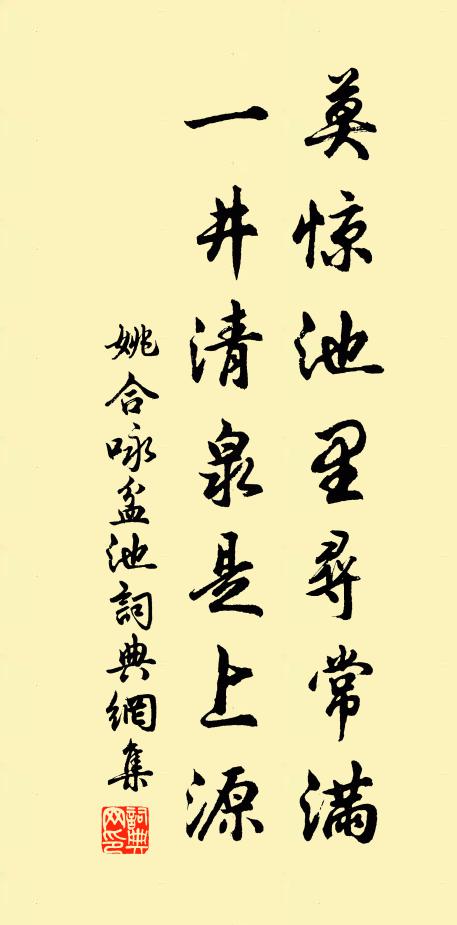 莫惊池里尋常滿
一井清泉是上源
姚合咏盆池詞典網集
詞典网印